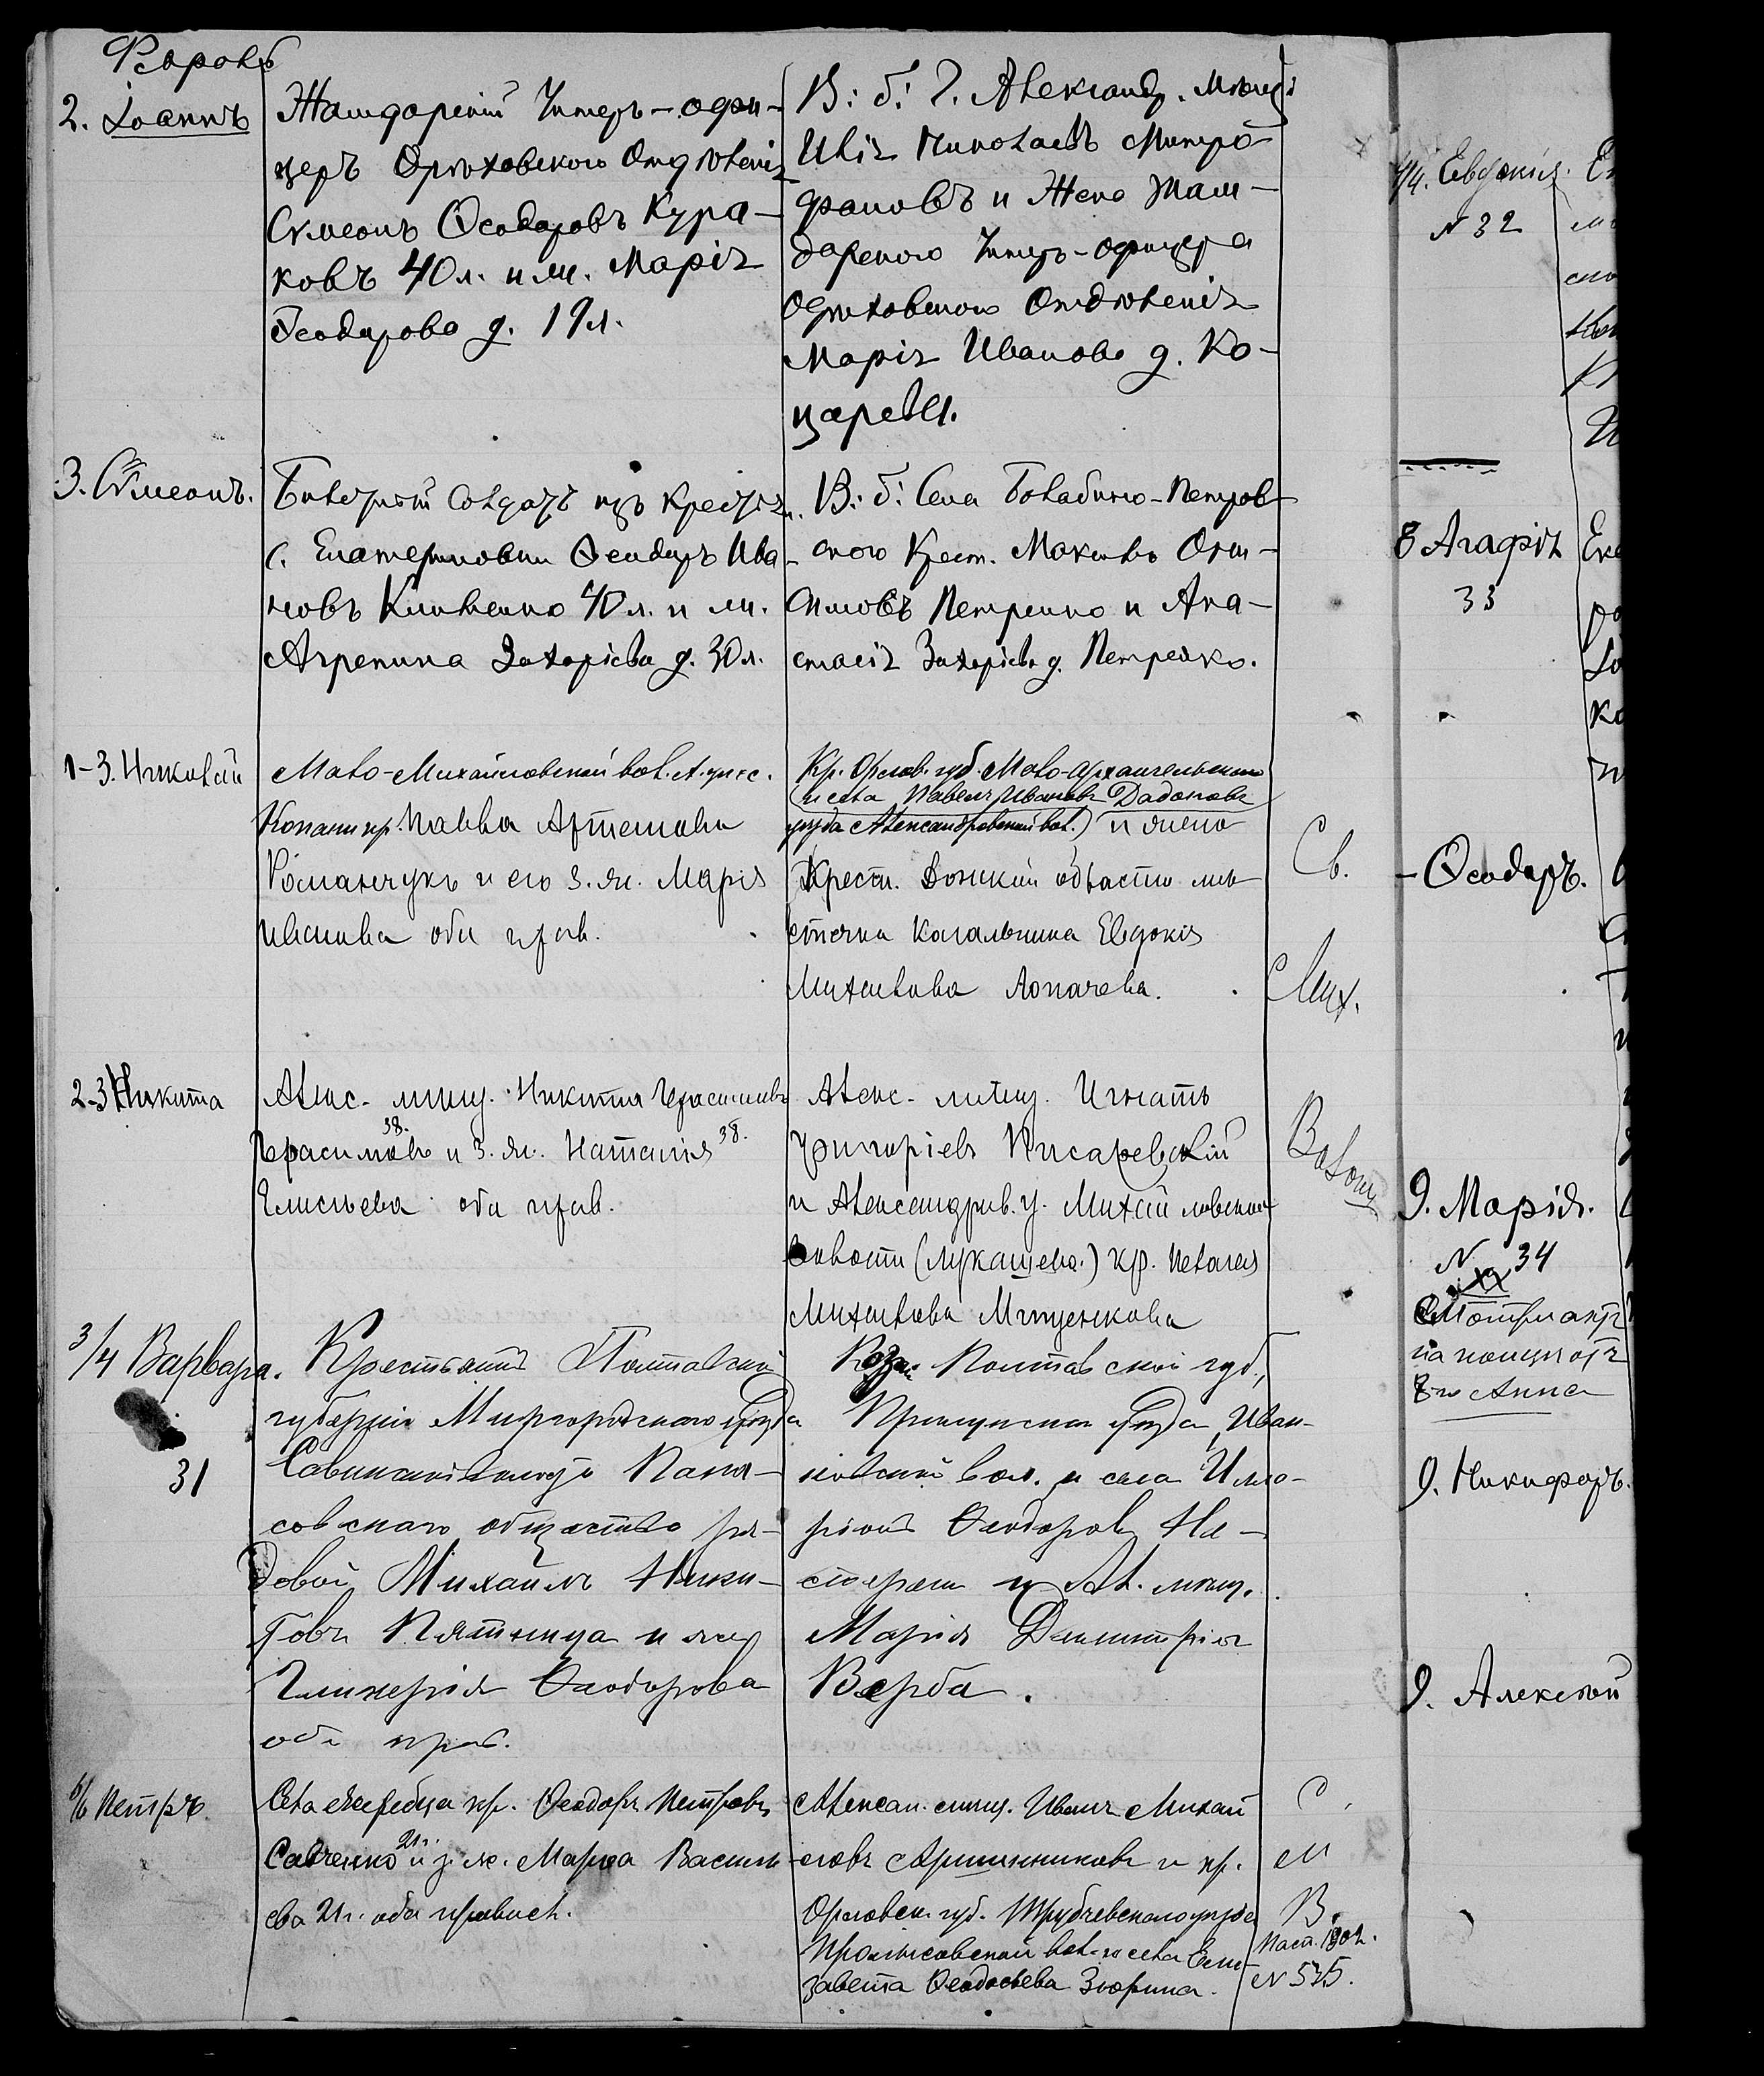 Февраль
2. Іоаннъ
Жандарскій Унтеръ-офи-
церъ Орѣховскаго Отдѣленія
Симеонъ Ѳеодоровъ Кура-
ковъ 40 л. и ж. Марія
Ѳеодорова д. 19 л.
В: б: Г. Александр. Мѣщ:
Николаевъ Митро-
фановъ и Жена Жан-
дарскаго Унтеръ-офицера
Орѣховскаго Отдѣленія
Марія Иванова д. Ко-
царевы.
3. Симеонъ.
Билетный Солдатъ изъ Крестьян.
с. Екатериновки Ѳеодоръ Ива-
новъ Клименко 40 л. и ж.
Агрепина Захарієва д. 30 л.
В: б: Села Балабино-Петров-
скаго Крест. Максимъ Они-
симовъ Петренко и Ана-
стасія Захарієва д. Петренко.
1-3. Николай
Мало-Михайловской вол. А. у. с.
Копани кр. Павелъ Артемовъ
Романчукъ и его з. ж. Марія
Иванова оба прав.
Кр. Орлов. губ. Мало-Архангельскаго
и села Павелъ Ивановъ Дадоновъ
уѣзда Александровской вол.) и жена
Крест. Донской области мѣ-
стечка Кагальника Евдокія
Михайлова Лопачева.
Св.
Мих.
2-3 Никита
Алекс. мѣщ. Никита Герасимовъ
Герасимовъ 38. и з. ж. Наталія 38.
Елисѣева оба прав.
Алекс. мѣщ. Игнатъ
Григоріевъ Писаревскій
и Александров. у. Михайловской
волости (Лукашева.) кр. Пелагея
Михайлова Мищенкова
Волош
3/4 Варвара.
31
Крестьянинъ Полтавской
губерніи Миргородскаго уѣзда
Савинской волости Пана-
совскаго общества ря-
довой Михаилъ Ники-
товъ Пятница и жена
Гликерія Ѳеодорова
оба прав.
Козакъ Полтавской губ.,
Прилукскаго уѣзда, Иван-
ковской вол. и села Илла-
ріонъ Ѳеодоровъ Не-
стеренко и Ал. мѣщ.
Марія Димитрієва
Верба.
6/6 Петръ.
Села Жеребца кр. Ѳеодоръ Петровъ
Савченко 21 г. и з. ж. Марѳа Василь-
ева 21 г. оба правосл.
Алексан. мѣщ. Иванъ Михай-
ловъ Аршинниковъ и кр.
Орловск. губ. Трубчевскаго уѣзда
вол. го села Ели-
завета Ѳеодосьева Зюрина.
С.
М
В.
Пасп. 190 г.
№ 535.
4/4. Евдокія.
№ 32
8 Агафія
33
- Ѳеодоръ.
9. Марія.
№ 34
Смотри актъ
на концѣ отъ
8-го Анна
9. Никифоръ.
9. Алексѣй